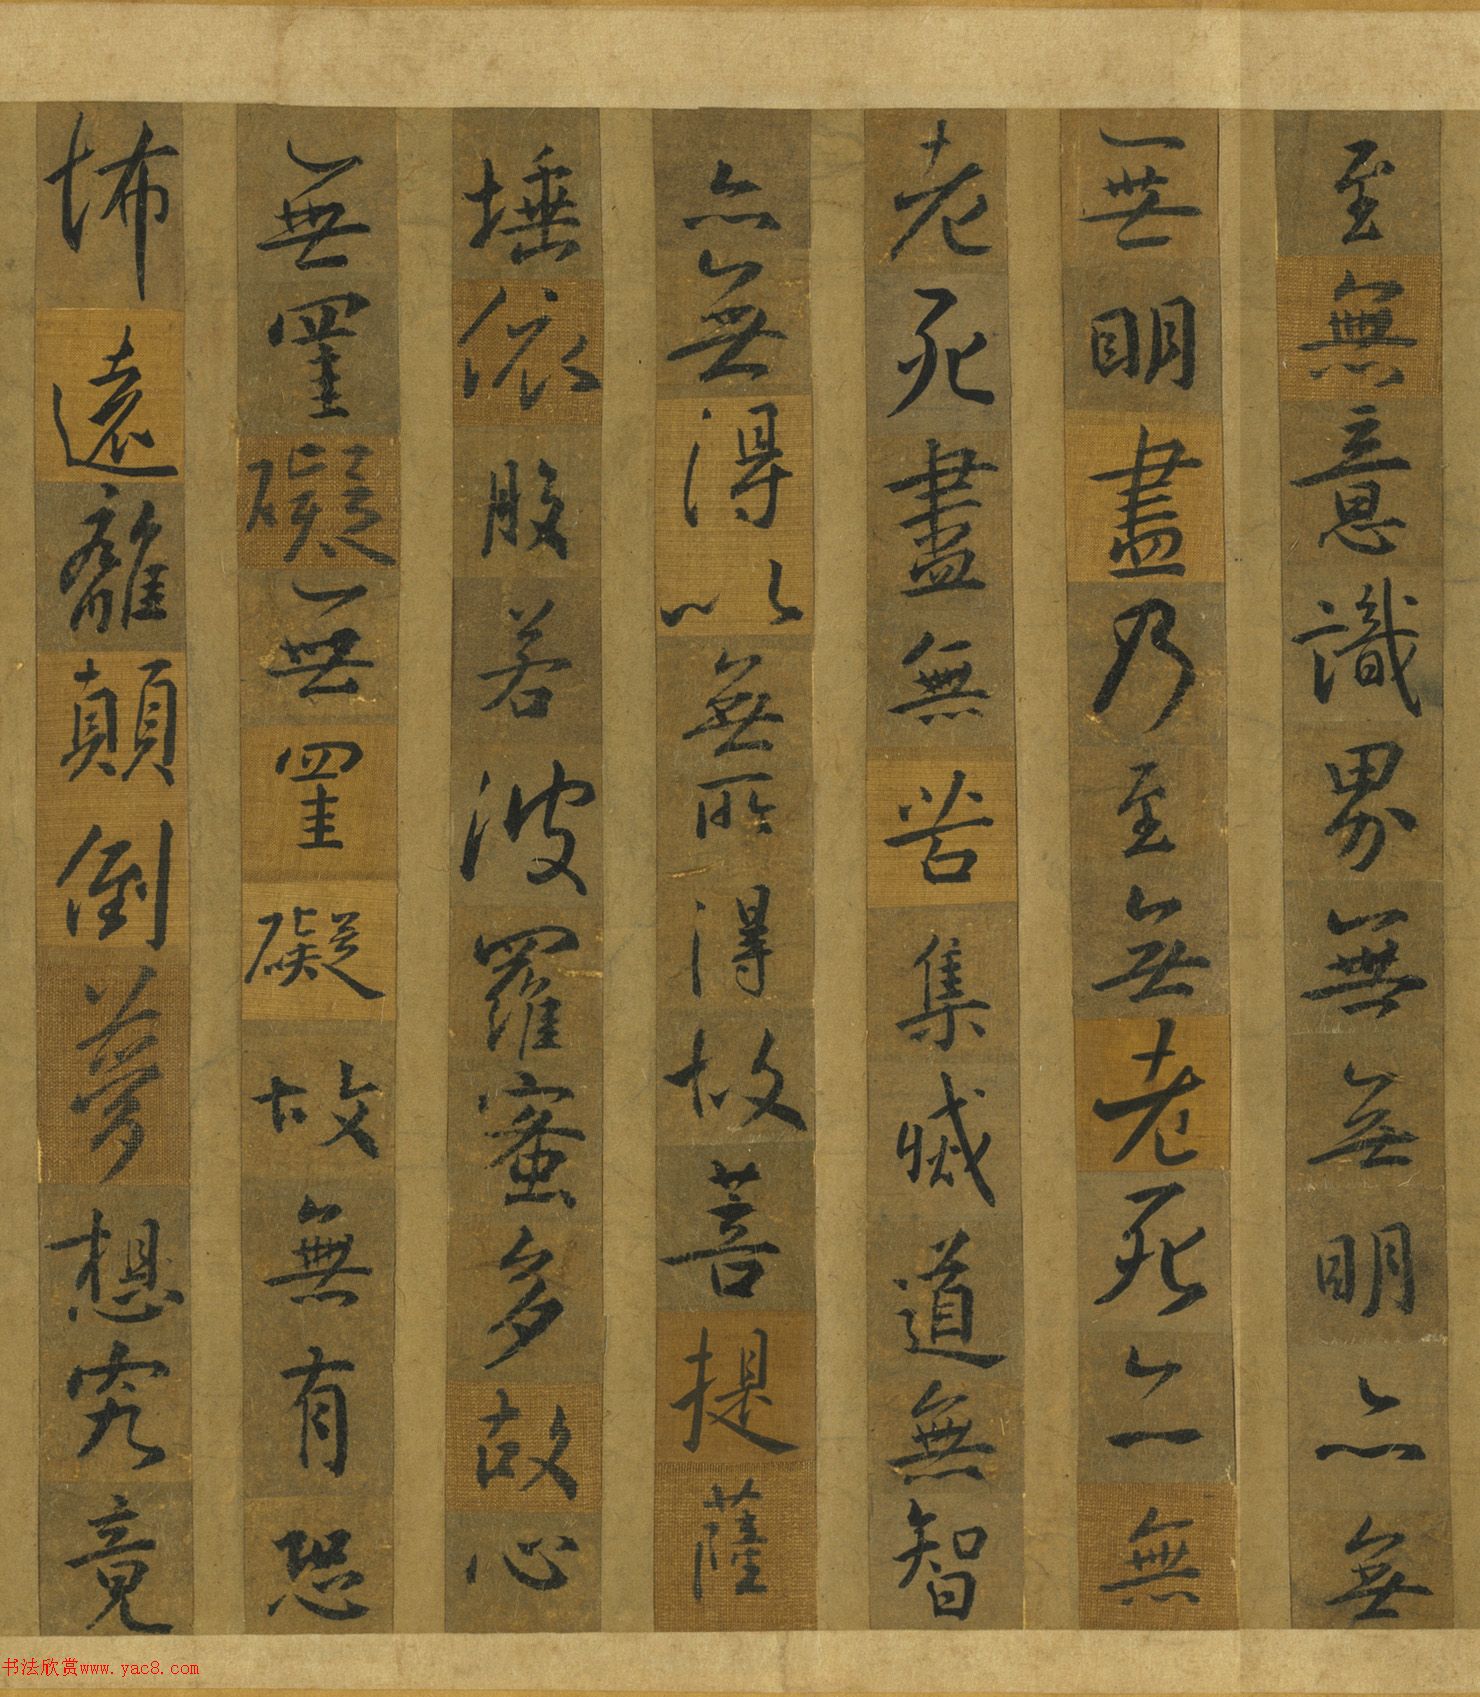 至無意識界無無明亦無
無明盡乃至無老死亦無
老死盡無苦集滅道無智
亦無得以無所得故菩提薩
埵依般若波羅蜜多故心
無罣礙無罣礙故無有恐
怖遠離顛倒夢想究竟
书法欣赏www.yac8.com